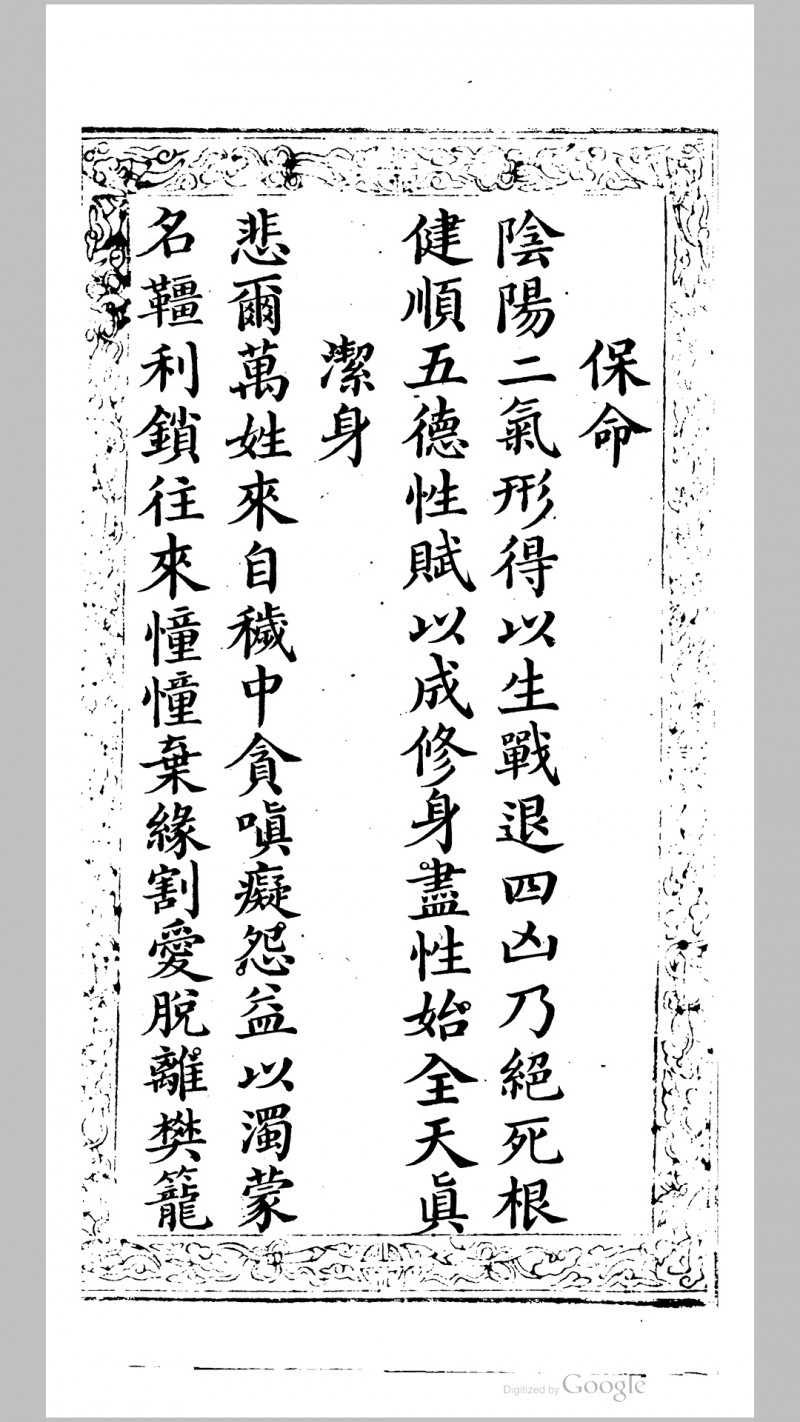 保命
陰陽二氣形得以生戰退四凶乃絕死根
健順五德性賦以成修身盡性始全天眞
潔身
悲爾萬姓來自穢中貪嗔癡怨益以濁蒙
名韁利鎖往來憧憧棄緣割愛脫離樊籠
Digitized by Google